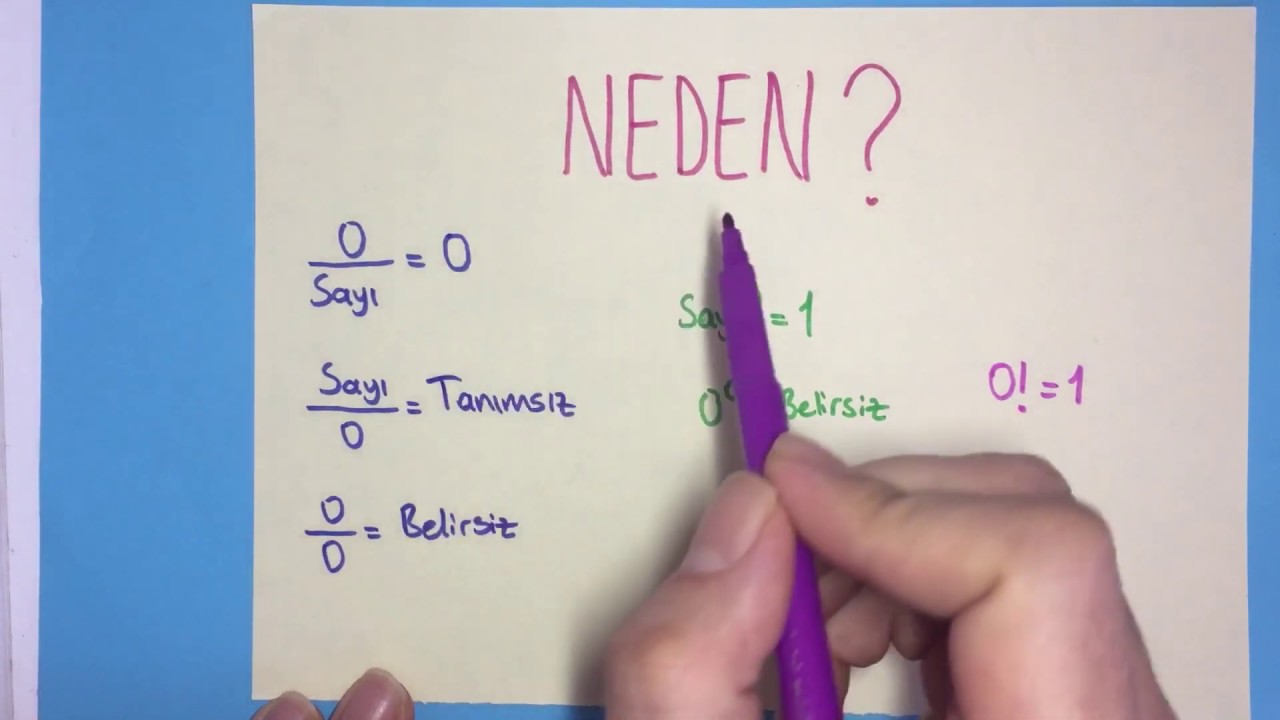 NEDEN?
0
Sayı = 0
Sayı
0 = Tanımsız
0
0 = Belirsiz
= 1
0 Belirsiz
0! = 1